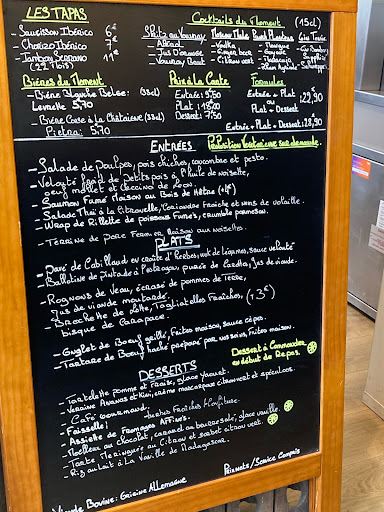 LES TAPAS
- Saucisson Ibérico 6€
- Chorizo Ibérico 7€
- Jambon Serrano 11€
Cocktails du Moment (15cl)
Spritz au Vouvray
- Apérol
- Jus d'orange
- Vouvray Brut
Moscow Mule
- Vodka
- Ginger beer
- Citron vert
Punch Planteur
Bières du Moment
- Bière Blanche Belge: (33cl)
5.70
- Bière Corse à la Châtaigne (33cl)
Pietra: 5.70
Prix à la Carte
Entrée: 9.50
Plat: 18.00
Dessert: 7.50
Formules
Entrée + Plat
ou
Plat + Dessert
22,90
Entrée + Plat + Dessert: 28,90
ENTRÉES
Proposition Végétarienne sur demande.
- Salade de poulpes, pois chiches, concombre et pesto.
- Velouté froid de petits pois à l'huile de noisette,
œuf mollet et Cecina de Leon.
- Saumon Fumé Maison au Bois de Hêtre (+1€)
- Salade Thaï à la Citrouille, Coriandre fraîche et noix de volaille.
- Wrap de Rillette de poissons Fumés, crumble parmesan.
- Terrine de porc Fermier Maison aux noisettes.
PLATS
- Pavé de Cabillaud en croûte d'herbes, wok de légumes, sauce velouté
- Ballotine de pintade à l'estragon, purée de Carotte, jus de viande.
- Rognons de Veau, écrasé de pommes de Terre,
Jus de viande moutardé.
- Brochette de Lotte, Tagliatelles Fraîches, (+3€)
bisque de Carapace.
- Onglet de Bœuf grillé, Frites maison, sauce cèpes.
- Tartare de Bœuf haché préparé par nos soins, Frites maison.
Dessert à Commander
en début de Repas.
DESSERTS
- Tartelette pomme et Fraise, glace yaourt.
- Verrine Ananas et Kiwi, crème mascarpone citron vert et spéculoos.
- Café Gourmand.
- Faisselle: Fraîches Confiture
- Assiette de Fromages Affinés.
- Moelleux au chocolat, caramel au beurre salé, glace vanille.
- Tarte Meringuée au Citron et sorbet citron vert.
- Riz au lait à la Vanille de Madagascar.
Prix nets/Service Compris
Viande Bovine: Origine Allemagne